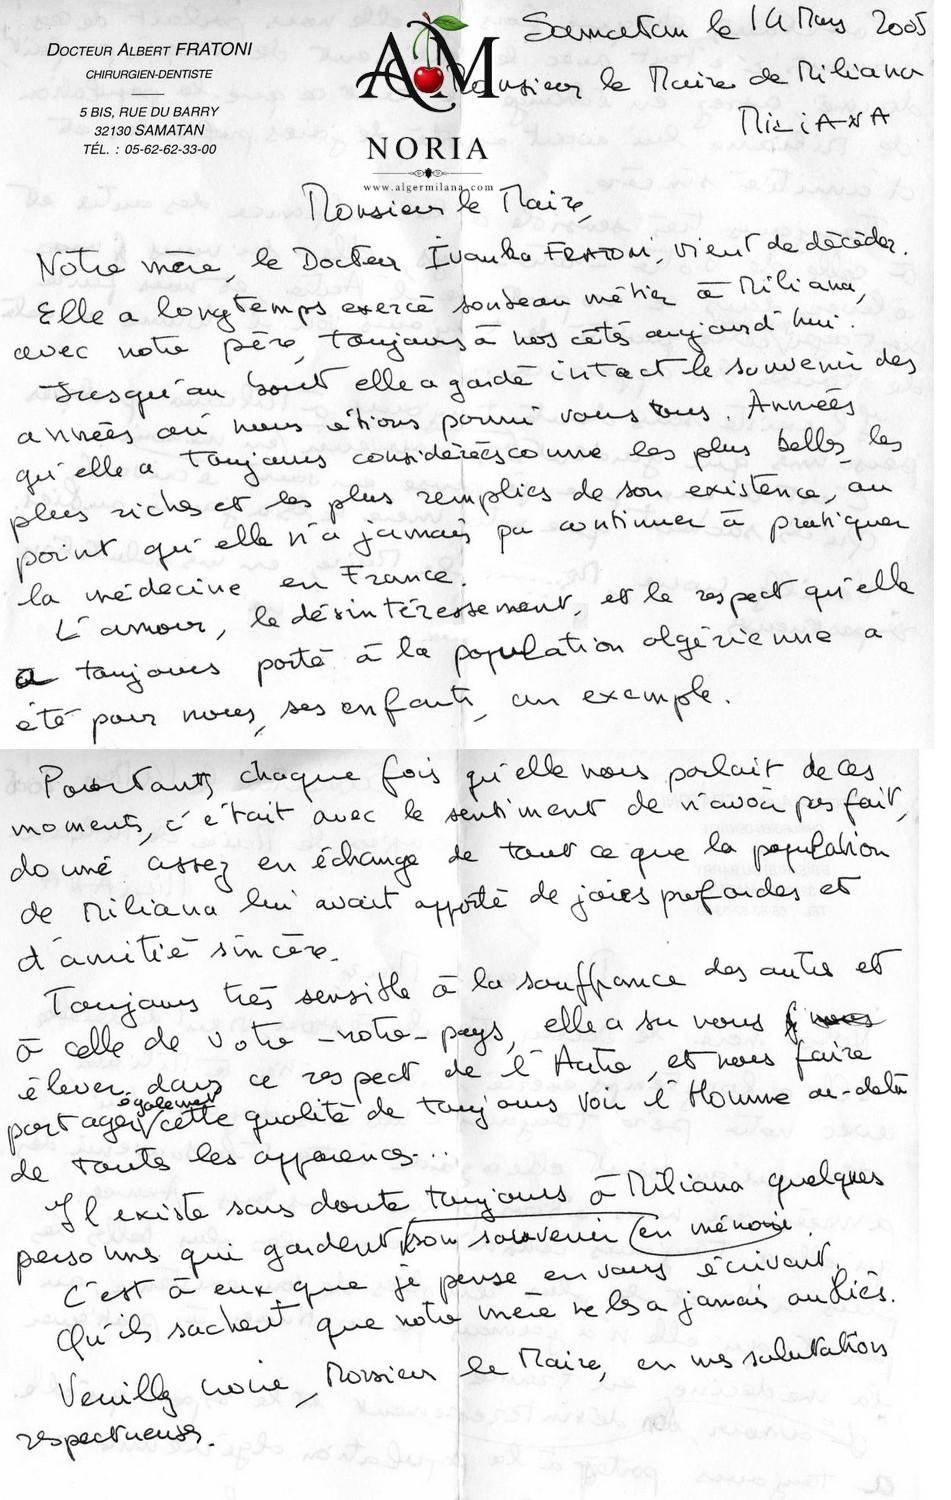 DOCTEUR ALBERT FRATONI
CHIRURGIEN-DENTISTE
5 BIS, RUE DU BARRY
32130 SAMATAN
TÉL. : 05-62-62-33-00
AM
NORIA
www.algermilana.com
Samatan le 14 Mars 2005
Monsieur le Maire de Miliana
MILIANA
Monsieur le Maire,
Notre mère, le Docteur Ivanka FRATONI, vient de décéder.
Elle a longtemps exercé son beau métier à Miliana,
avec notre père, toujours à nos côtés aujourd'hui.
Jusqu'au bout elle a gardé intact le souvenir des
années où nous étions parmi vous tous. Années
qu'elle a toujours considérées comme les plus belles, les
plus riches et les plus remplies de son existence, au
point qu'elle n'a jamais pu continuer à pratiquer
la médecine en France.
L'amour, le désintéressement, et le respect qu'elle
a toujours porté à la population algérienne a
été pour nous, ses enfants, un exemple.
Pourtant, chaque fois qu'elle nous parlait de ces
moments, c'était avec le sentiment de n'avoir pas fait,
donné assez en échange de tout ce que la population
de Miliana lui avait apporté de joies profondes et
d'amitié sincère.
Toujours très sensible à la souffrance des autres et
à celle de votre -notre- pays, elle a su nous
élever dans ce respect de l'Autre, et nous faire
partager également cette qualité de toujours voir l'Homme au-delà
de toutes les apparences...
Il existe sans doute toujours à Miliana quelques
personnes qui gardent son souvenir en mémoire.
C'est à eux que je pense en vous écrivant.
Qu'ils sachent que notre mère ne les a jamais oubliés.
Veuillez croire, Monsieur le Maire, en mes salutations
respectueuses.